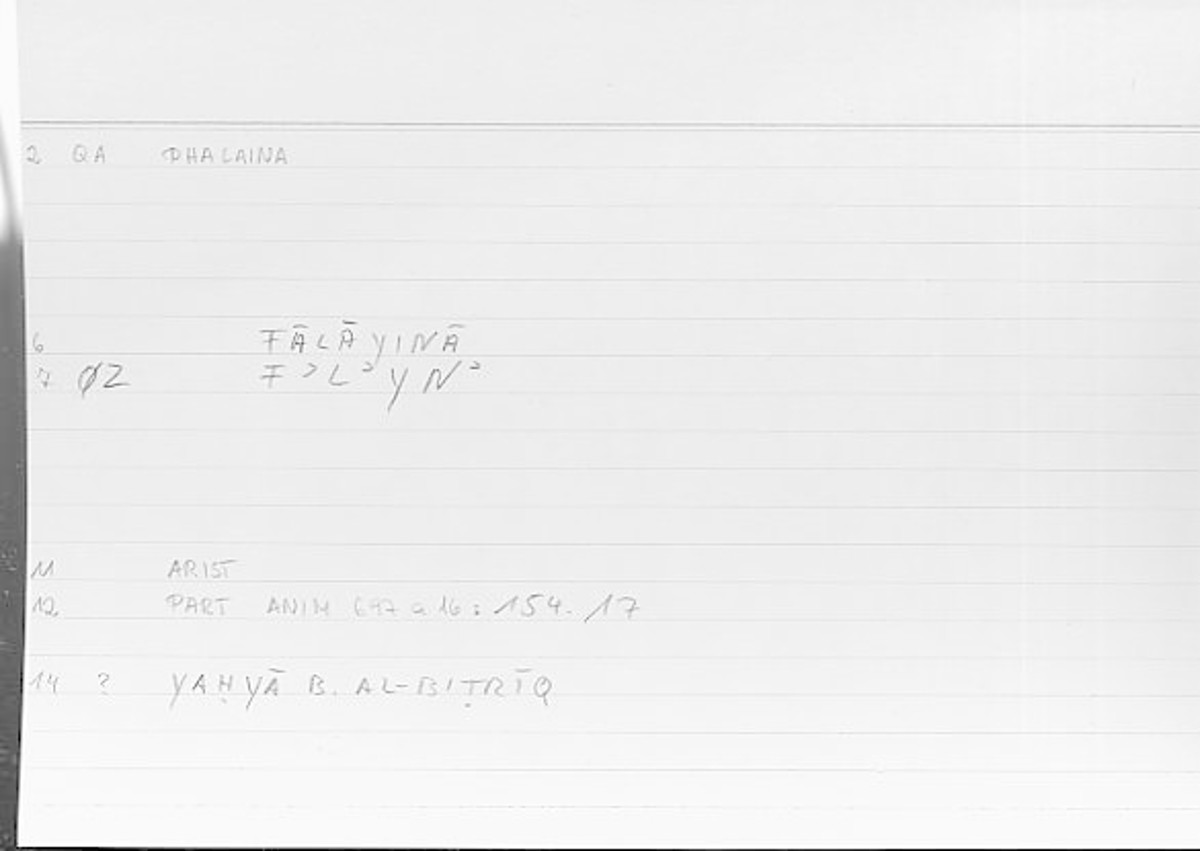 2 QA PHALAINA
6 FĀLĀYINĀ
7 ØZ FʾLʾYNʾ
11 ARIST
12 PART ANIM 697 a 16 : 154. 17
14 ? YAḤYĀ B. AL-BIṬRĪQ